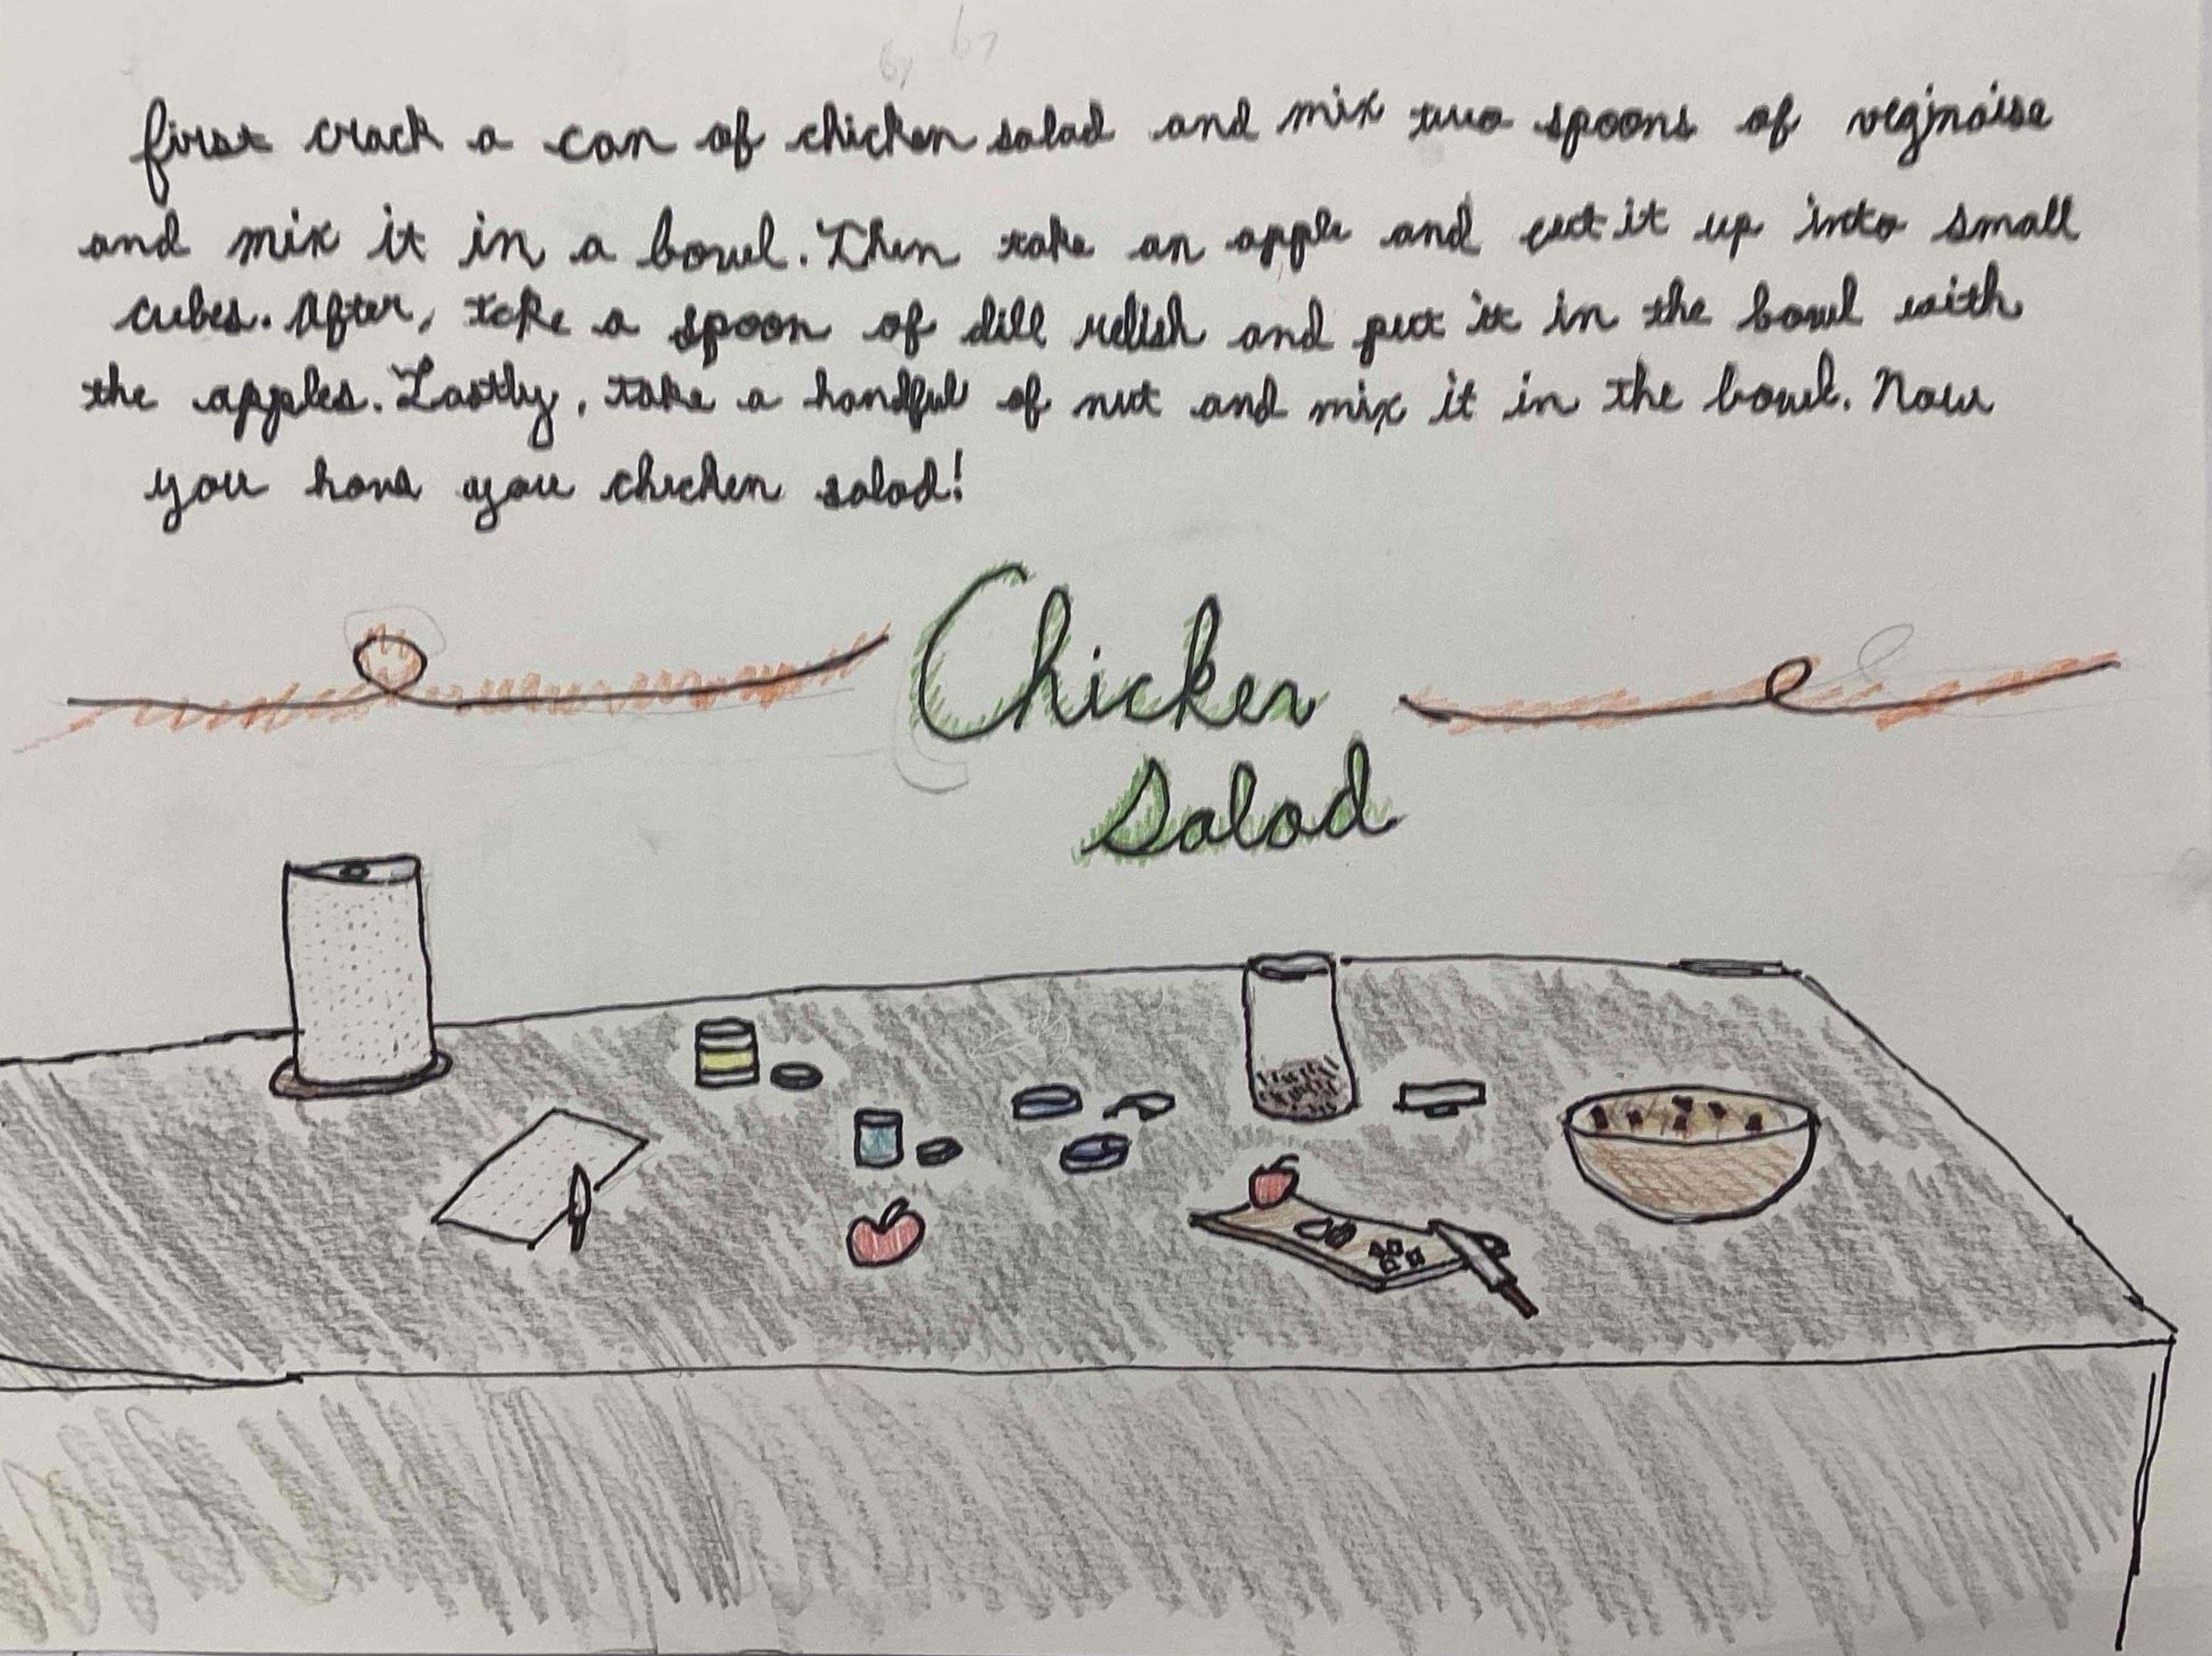 first crack a can of chicken salad and mix two spoons of vegjnaise
and mix it in a bowl. Then take an apple and cut it up into small
cubes. After, take a spoon of dill relish and put it in the bowl with
the apples. Lastly, take a handful of nut and mix it in the bowl. Now
you have you chicken salad!
Chicken
Salad